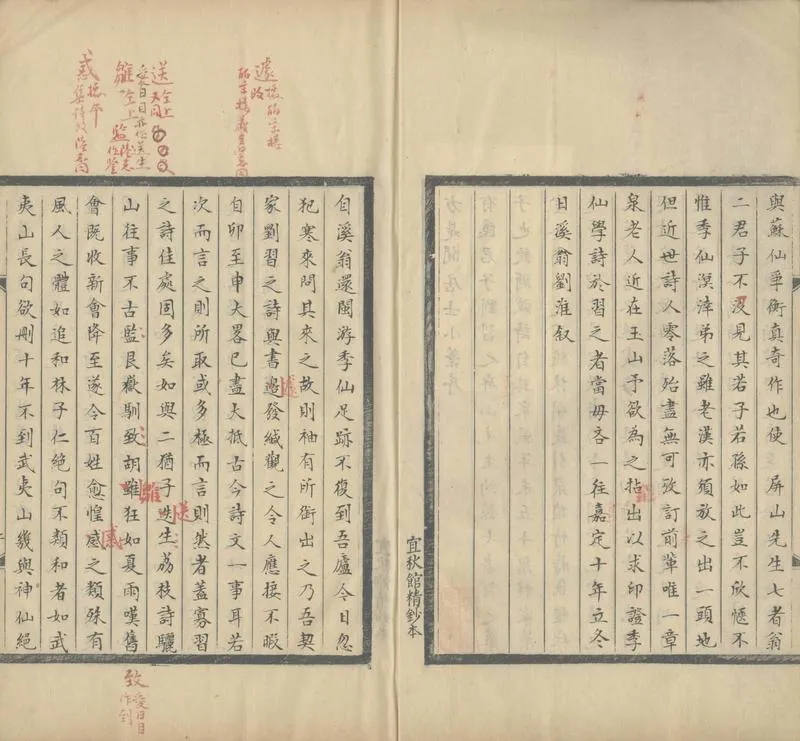 與蘇仙爭衡真奇作也使 屏山先生七者翁
二君子不沒見其若子若孫如此豈不欣愜不
惟季仙溟涬弟之雖老漢亦須放之出一頭地
但近世詩人零落殆盡無可攷訂前輩唯一章
泉老人近在玉山予欲為之拈出以求印證季
仙學詩於習之者當毋吝一往嘉定十年立冬
日溪翁劉淮叙
宜秋館精鈔本
遽
自溪翁還閩游季仙足跡不復到吾廬今日忽
犯寒來問其來之故則袖有所銜出之乃吾契
家劉習之詩與書邊發緘觀之令人應接不暇
遽
自卯至申大畧已盡大抵古今詩文一事耳若
次而言之則所取或多極而言則然者蓋寡習
之詩佳處固多矣如與二猶子迭生荔枝詩驪
送
山往事不古監艮嶽馴致胡雖狂如夏雨嘆舊
雛
會既收新會降至遂令百姓愈惶感之類殊有
惑
風人之體如追和林子仁絕句不類和者如武
夷山長句欲刪十年不到武夷山幾與神仙絕
送 仝上
雛 仝上
惑
致 愛日目作到